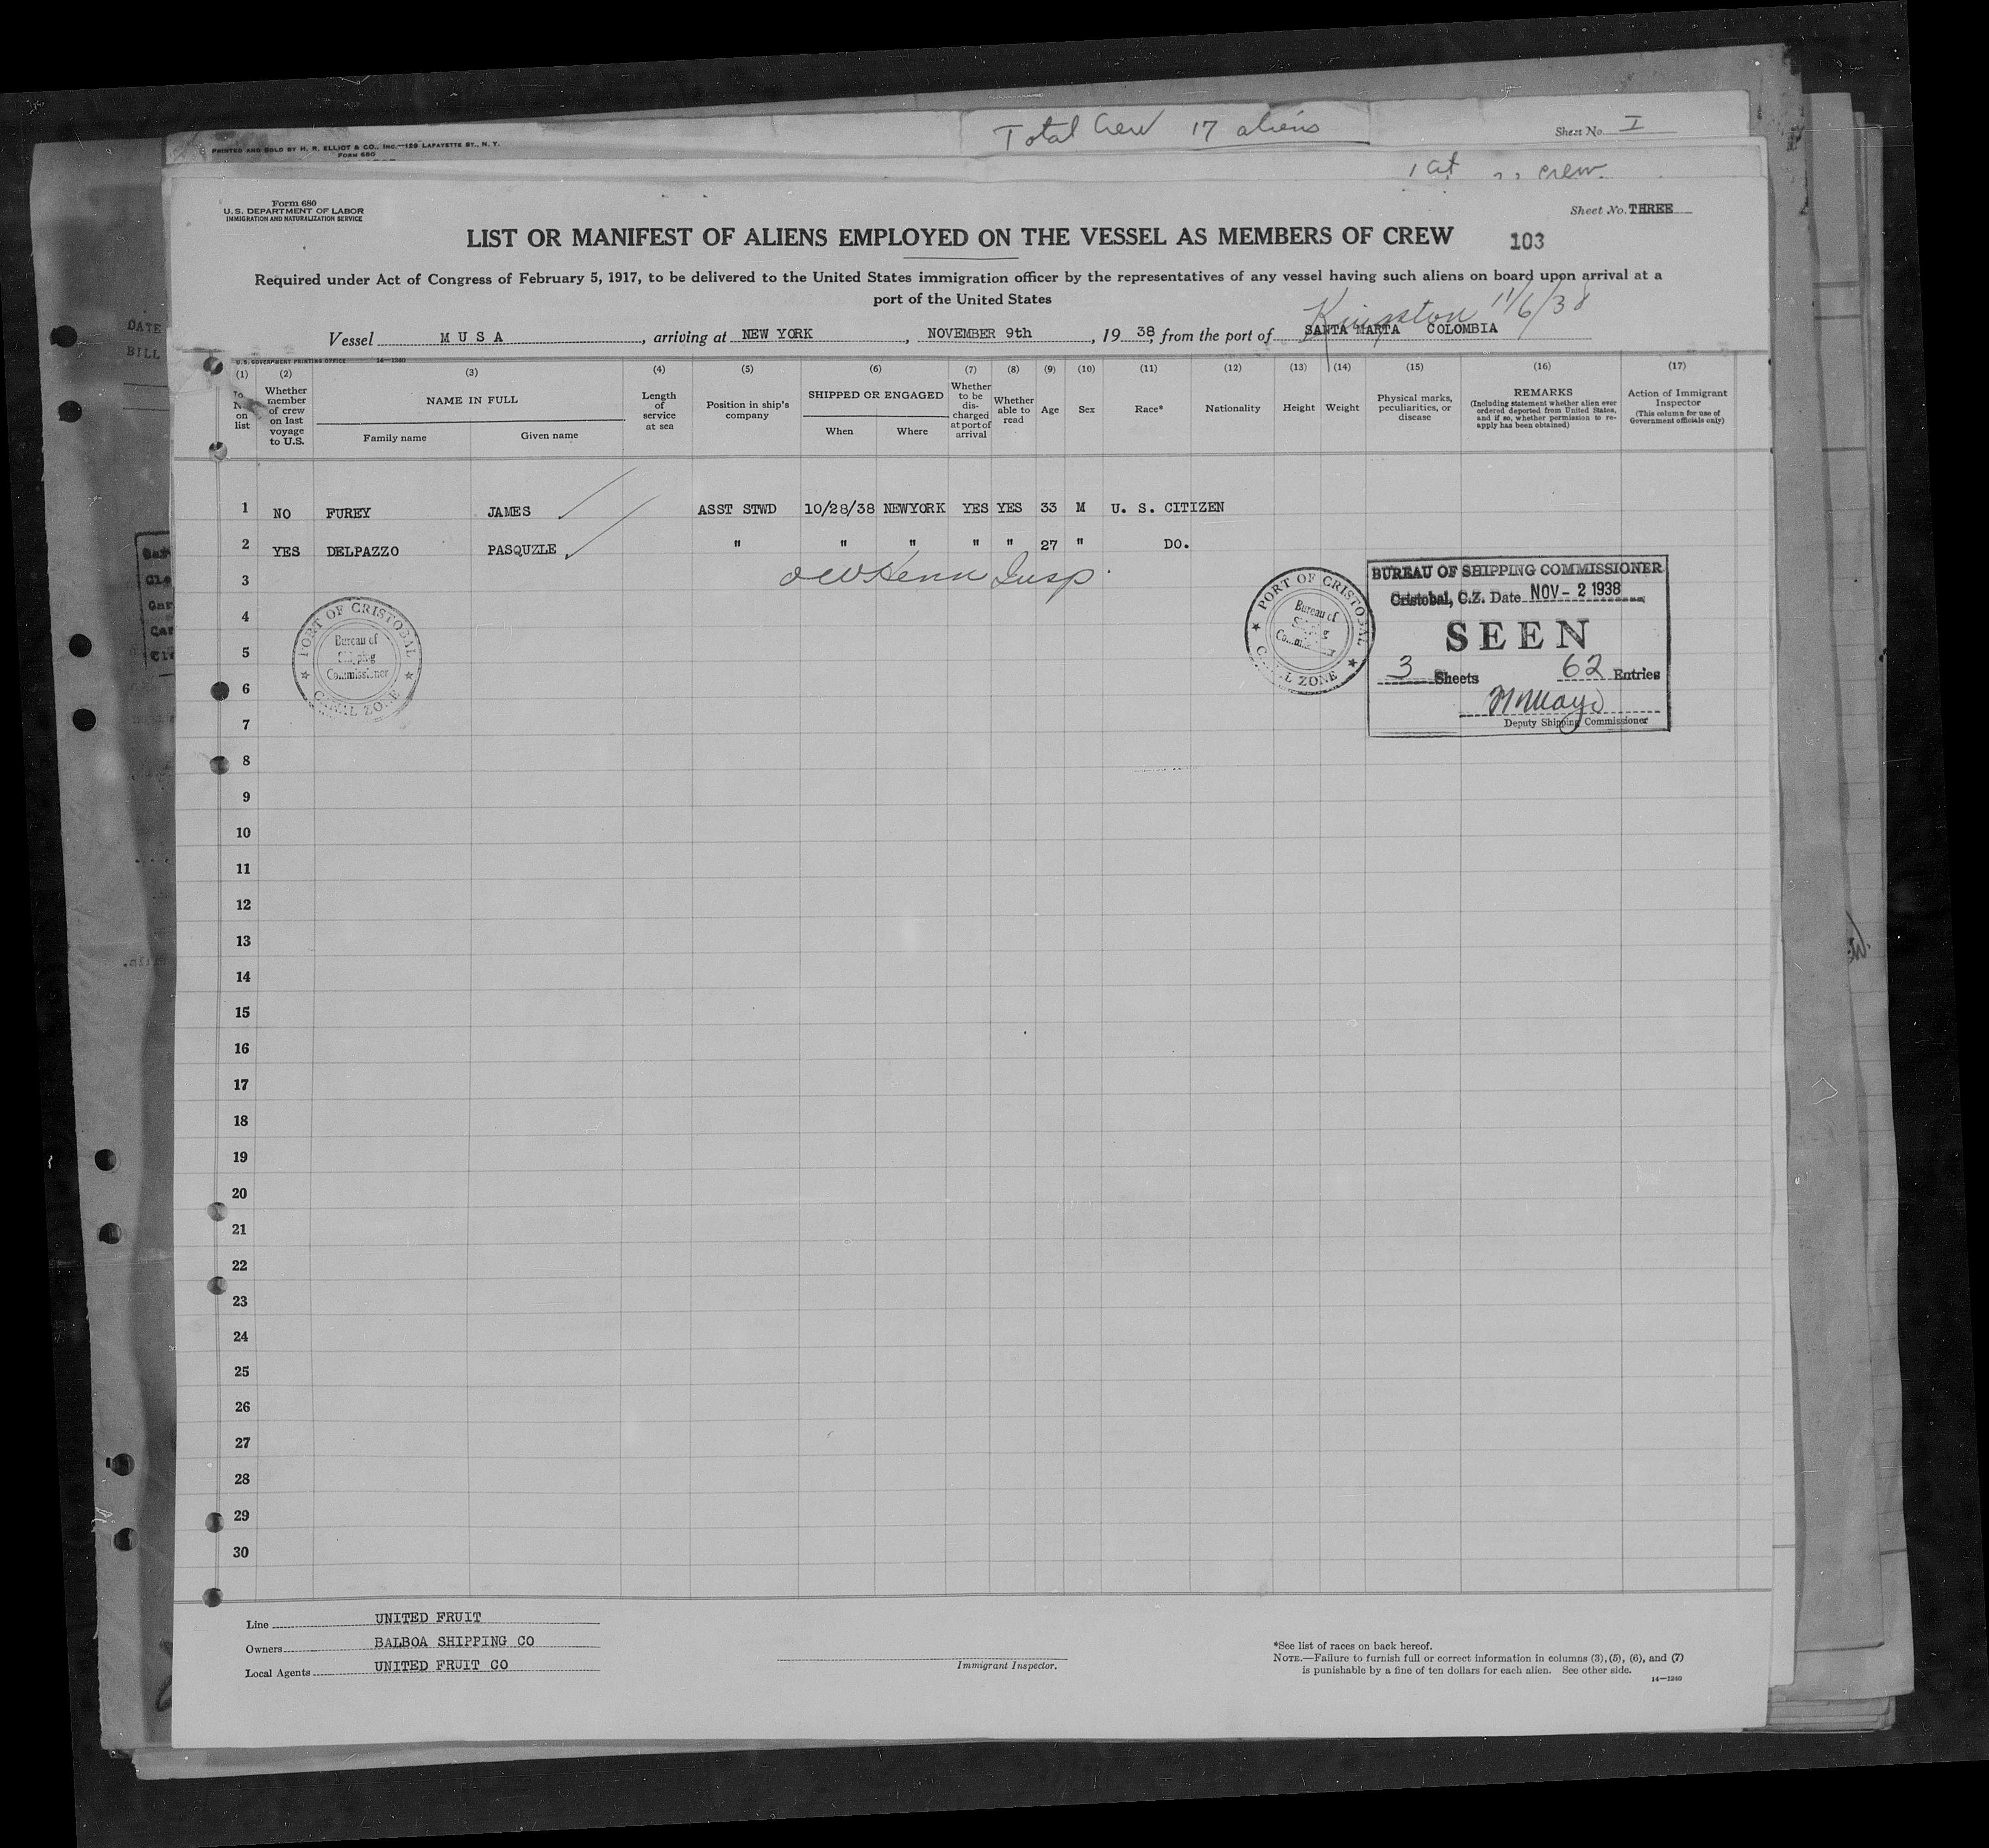 Total Crew 17 aliens
Sheet No. I
PRINTED AND SOLD BY H. R. ELLIOT & CO., INC.—129 LAFAYETTE ST., N. Y.
FORM 680
1 cit " " crew.
Form 680
U.S. DEPARTMENT OF LABOR
IMMIGRATION AND NATURALIZATION SERVICE
Sheet No. THREE
LIST OR MANIFEST OF ALIENS EMPLOYED ON THE VESSEL AS MEMBERS OF CREW 103
Required under Act of Congress of February 5, 1917, to be delivered to the United States immigration officer by the representatives of any vessel having such aliens on board upon arrival at a
port of the United States
Kingston 11/6/38
Vessel MUSA, arriving at NEW YORK, NOVEMBER 9th, 19 38, from the port of SANTA MARTA COLOMBIA
U.S. GOVERNMENT PRINTING OFFICE 14—1240
(1) (2) (3) (4) (5) (6) (7) (8) (9) (10) (11) (12) (13) (14) (15) (16) (17)
No. on list
Whether member of crew on last voyage to U.S.
NAME IN FULL
Family name Given name
Length of service at sea
Position in ship's company
SHIPPED OR ENGAGED
When Where
Whether to be discharged at port of arrival
Whether able to read
Age
Sex
Race*
Nationality
Height
Weight
Physical marks, peculiarities, or disease
REMARKS
(Including statement whether alien ever ordered deported from United States, and if so, whether permission to reapply has been obtained)
Action of Immigrant Inspector
(This column for use of Government officials only)
1 NO FUREY JAMES ASST STWD 10/28/38 NEWYORK YES YES 33 M U. S. CITIZEN
2 YES DELPAZZO PASQUZLE " " " " " 27 " DO.
3
Insp.
4
5
6
7
8
9
10
11
12
13
14
15
16
17
18
19
20
21
22
23
24
25
26
27
28
29
30
PORT OF CRISTOBAL
Bureau of
Shipping
Commissioner
CANAL ZONE
PORT OF CRISTOBAL
Bureau of
Shipping
Commissioner
CANAL ZONE
BUREAU OF SHIPPING COMMISSIONER
Cristobal, C.Z. Date NOV - 2 1938
SEEN
3 Sheets 62 Entries
Deputy Shipping Commissioner
Line UNITED FRUIT
Owners BALBOA SHIPPING CO
Local Agents UNITED FRUIT CO
Immigrant Inspector.
*See list of races on back hereof.
NOTE.—Failure to furnish full or correct information in columns (3), (5), (6), and (7)
is punishable by a fine of ten dollars for each alien. See other side.
14—1240
DATE
BILL